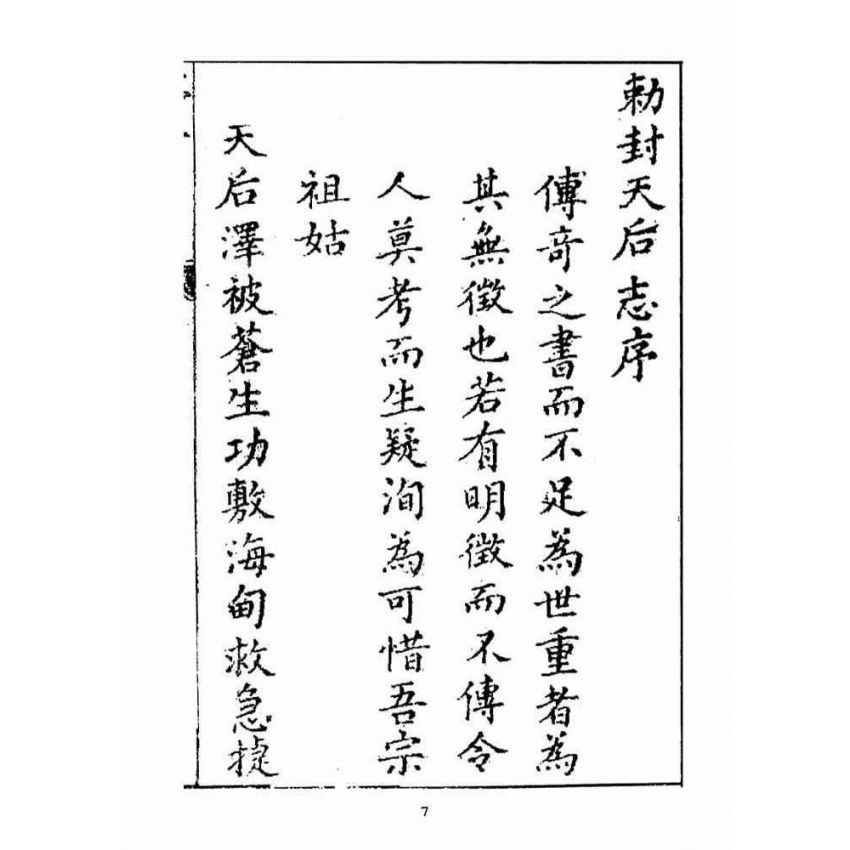 勅封天后志序
傳奇之書而不足為世重者為
其無徵也若有明徵而不傳令
人莫考而生疑洵為可惜吾宗
祖姑
天后澤被蒼生功敷海甸救急捷
7